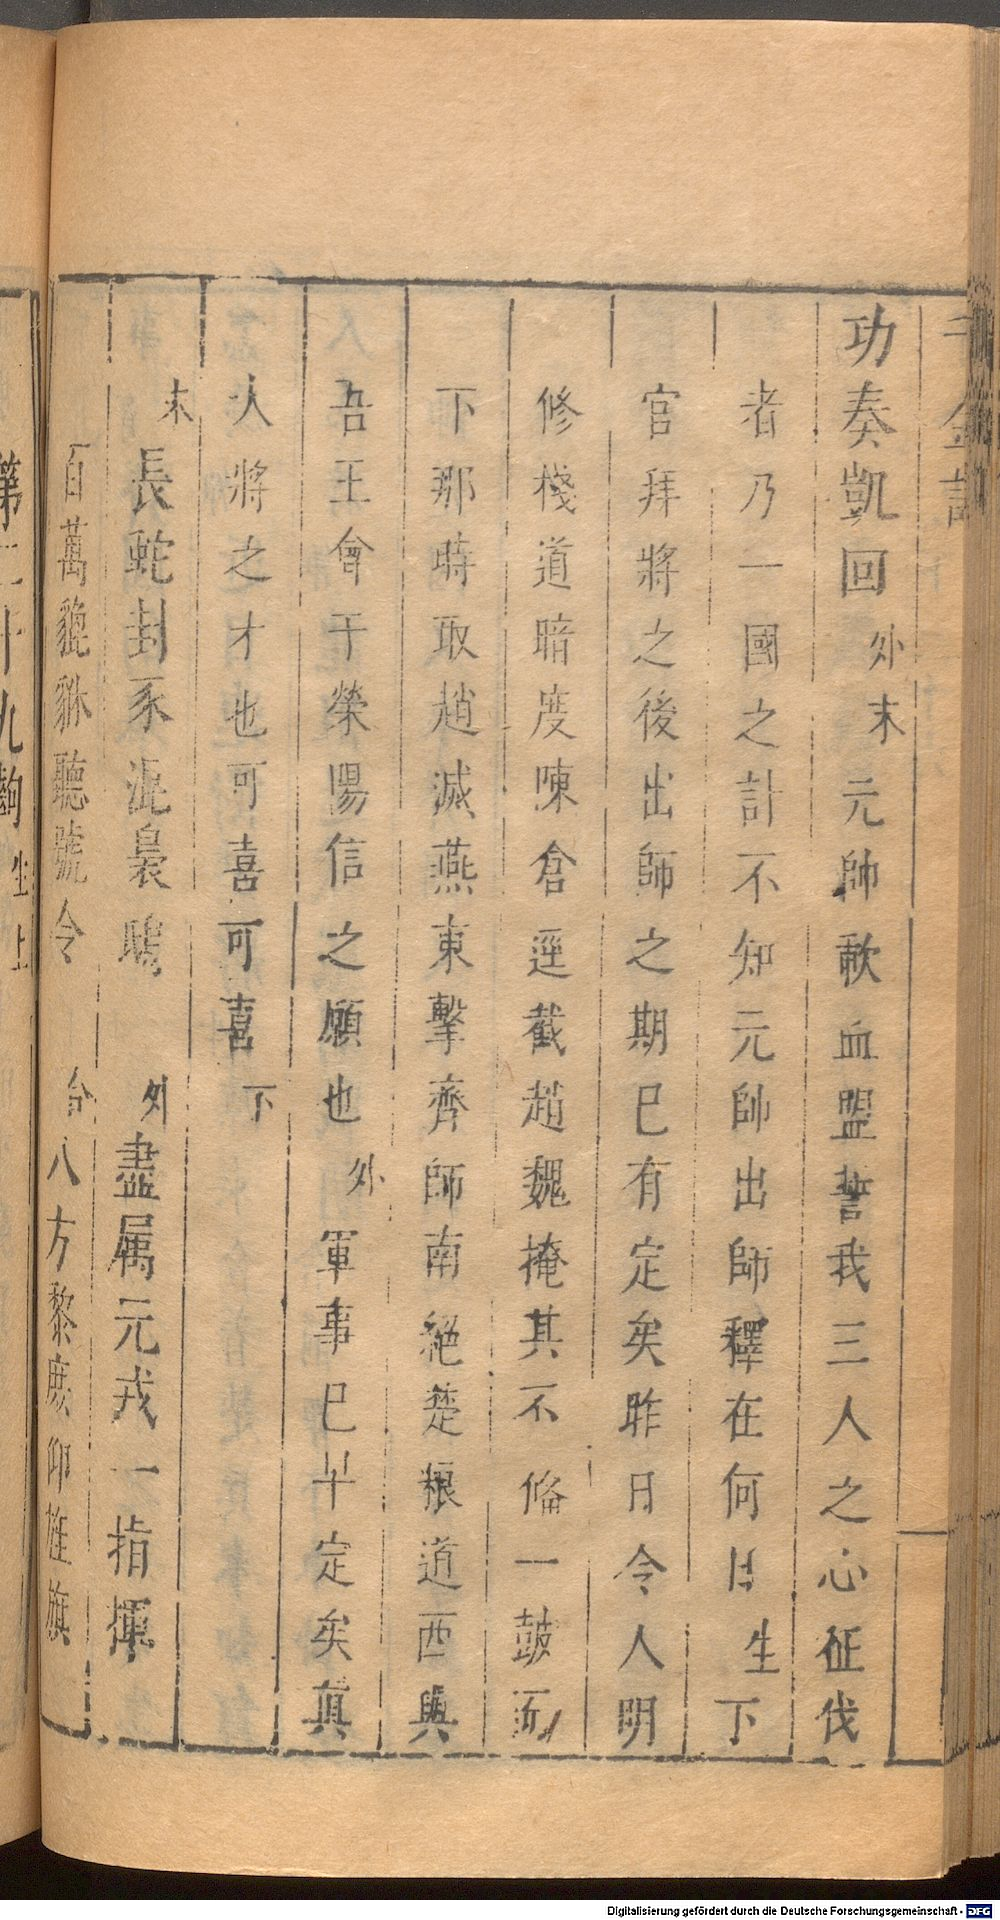 千金記
功奏凱回 外末 元帥歃血盟誓我三人之心征伐
者乃一國之計不知元帥出師釋在何日 生 下
官拜將之後出師之期已有定矣昨日令人明
修棧道暗度陳倉逕截趙魏掩其不俻一鼓而
下那時取趙滅燕東擊齊師南絕楚粮道西與
吾王會于榮陽信之願也 外 軍事已半定矣真
人將之才也可喜可喜 下
末 長蛇封豕混裊鴟 外 盡属元戎一指揮
百萬貔貅聽號令 合 八方黎庶仰旌旗
第二十九齣 生上
Digitalisierung gefördert durch die Deutsche Forschungsgemeinschaft - DFG